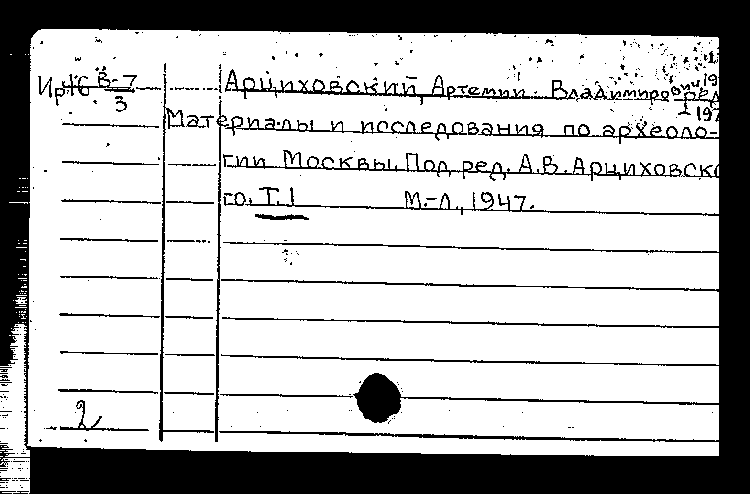 Ир В-7 Арциховский, Артемий Владимирович
3
Материалы и исследования по археоло-
гии Москвы. Под ред. А.В. Арциховско
го. Т. 1 М.-Л., 1947.
2